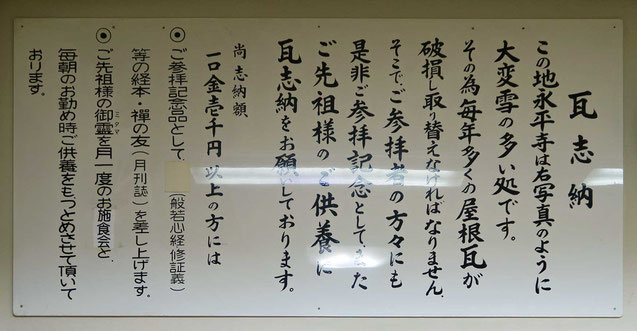 瓦志納
この地永平寺は右写真のように
大変雪の多い処です。
その為毎年多くの屋根瓦が
破損し取り替えなければなりません。
そこでご参拝者の方々にも
是非ご参拝記念として、また
ご先祖様のご供養に
瓦志納をお願いしております。
尚志納額
一口金壱千円以上の方には
◉ご参拝記念品として、(般若心経修証義)
等の経本・禅の友(月刊誌)を差し上げます。
◉ご先祖様の御霊ミタマを月一度のお施食会と
毎朝のお勤め時ご供養をもつとめさせて頂いて
おります。